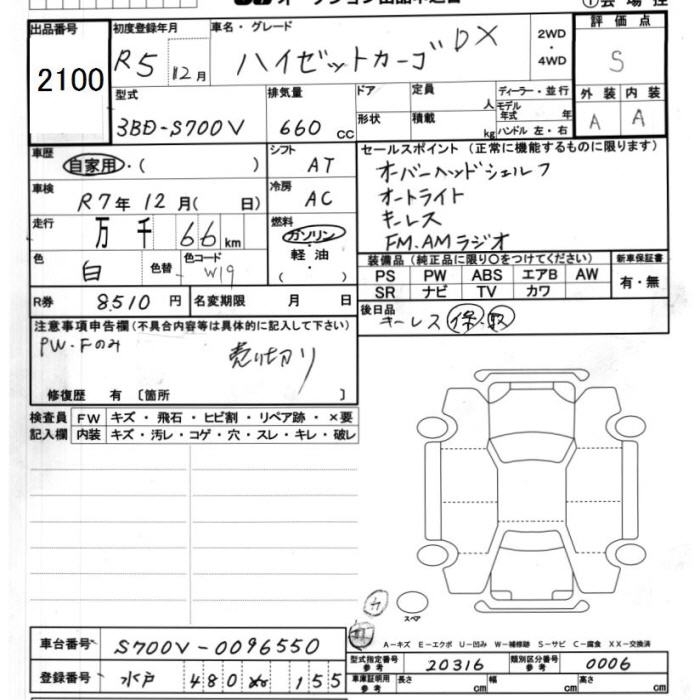 出品番号
2100
初度登録年月
R5 12月
車名・グレード
ハイゼットカーゴ DX
2WD
・
4WD
評価点
S
外装 内装
A A
型式
3BD-S700V
排気量
660 cc
ドア
形状
定員 人
積載 kg
ディーラー・並行
モデル年式 年
ハンドル 左・右
車歴
自家用・( )
シフト
AT
車検
R7年12月( 日)
冷房
AC
走行
万千66km
燃料
ガソリン
・
軽油
・
( )
色
白
色替
色コード
W19
R券 8510円
名変期限 月 日
セールスポイント(正常に機能するものに限ります)
オーバーヘッドシェルフ
オートライト
キーレス
FM.AMラジオ
装備品(純正品に限り○をつけてください)
PS PW ABS エアB AW
SR ナビ TV カワ
新車保証書
有・無
後日品
キーレス 保・取
注意事項申告欄(不具合内容等は具体的に記入して下さい)
PW・Fのみ
売り切り
修復歴 有〔箇所 〕
検査員
記入欄
FW キズ・飛石・ヒビ割・リペア跡・×要
内装 キズ・汚レ・コゲ・穴・スレ・キレ・破レ
スペア
A-キズ E-エクボ U-凹み W-補修跡 S-サビ C-腐食 XX-交換済
車台番号 S700V-0096550
登録番号 水戸 480 155
型式指定番号
参考
20316
類別区分番号
参考
0006
車庫証明用
参考
長さ cm
幅 cm
高さ cm